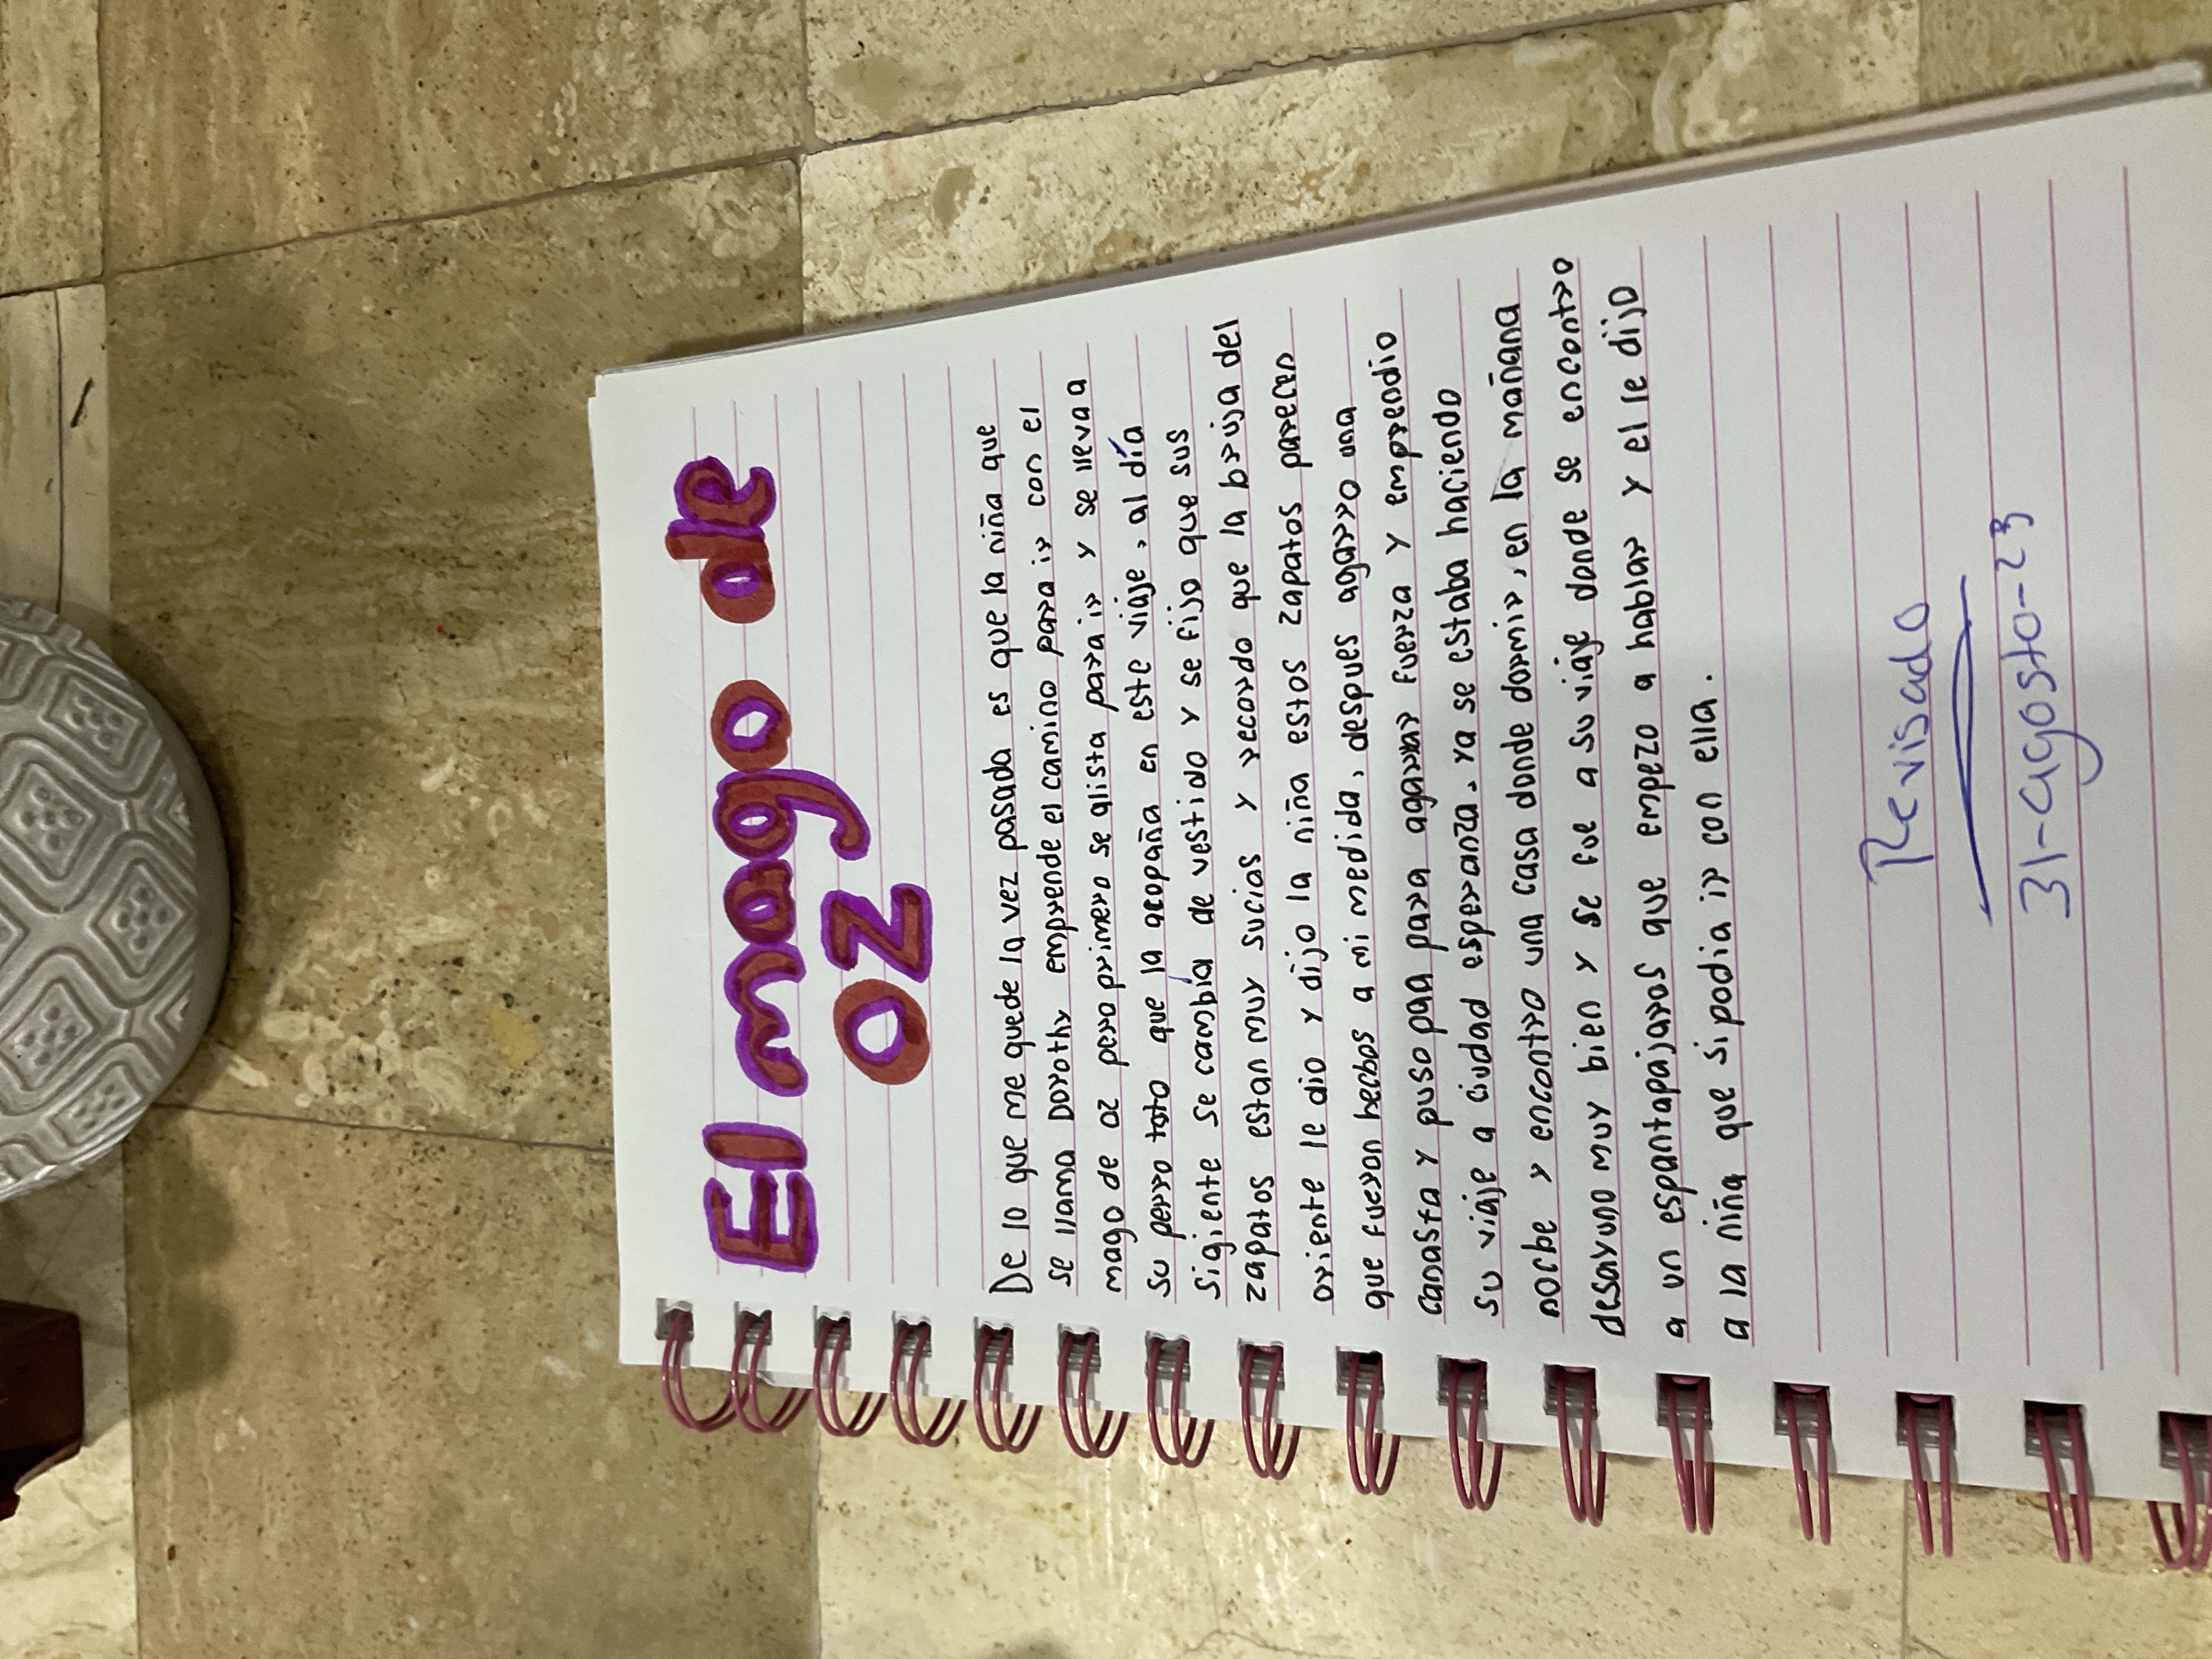 El mago de
OZ
De lo que me quede la vez pasada es que la niña que
se llama Dorothy emprende el camino para ir con el
mago de oz pero primero se alista para ir y se lleva a
su perro toto que la acopaña en este viaje, al día
sigiente se cambia de vestido y se fijo que sus
zapatos estan muy sucios y recordo que la bruja del
oriente le dio y dijo la niña estos zapatos parecen
que fueron hechos a mi medida, después agarro una
canasta y puso pan para agarrar fuerza y emprendio
su viaje a ciudad esperanza, ya se estaba haciendo
noche y encontro una casa donde dormir, en la mañana
desayuno muy bien y se fue a su viaje donde se encontro
a un espantapajaros que empezo a hablar y el le dijo
a la niña que si podia ir con ella.
Revisado
31-agosto-23